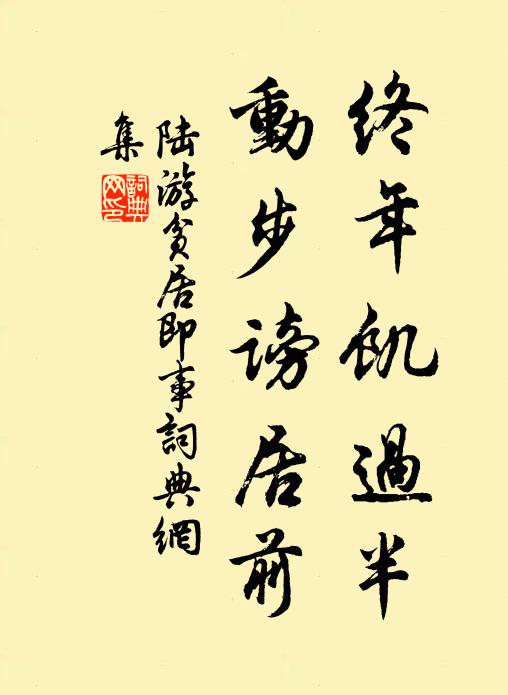 終年飢過半
動步謗居前
陸游貧居即事詞典網
集
詞典網印